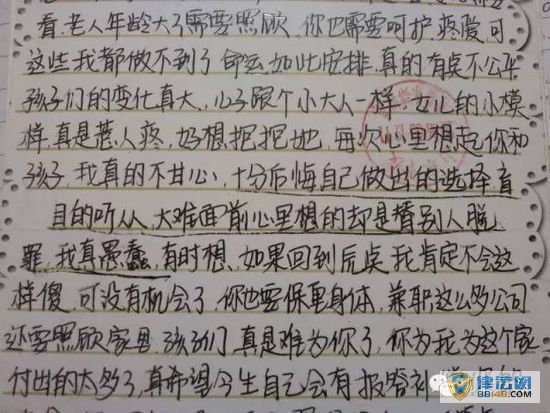 看.老人年龄大了需要照顾.你也需要呵护.疼爱.可
这些我都做不到了.命运如此安排.真的有点不公平
孩子们的变化真大.儿子跟个小大人一样.女儿的小模
样.真是惹人疼.好想抱抱她.每次心里想起你和
孩子.我真的不甘心.十分后悔自己做出的选择.盲
目的听从.大难面前心里想的却是替别人脱
罪.我真愚蠢.有时想.如果回到原点.我肯定不会这
样傻.可没有机会了.你也要保重身体.兼职这么多公司
还要照顾家里.孩子们.真是难为你了.你为我为这个家
付出的太多了.真希望今生自己会有报答
律法网
88148.com